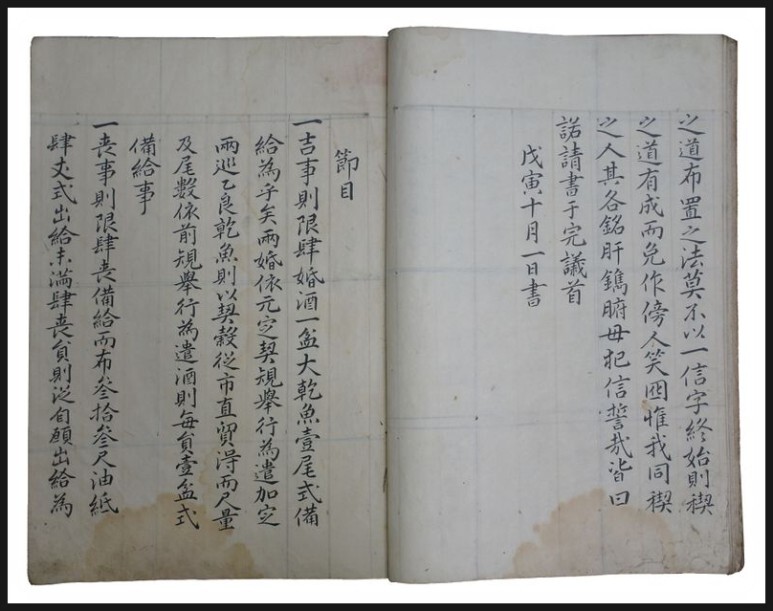 之道布置之法莫不以一信字終始則稧
之道有成而免作傍人笑囮惟我同稧
之人其各銘肝鐫腑毋犯信誓哉皆曰
諾請書于完議首
戊寅十月一日書
節目
一吉事則限肆婚酒一盆大乾魚壹尾式備
給為乎矣兩婚依元定契規舉行為遣加定
兩巡乙良乾魚則以契穀從市直貿得而尺量
及尾數依前規舉行為遣酒則每員壹盆式
備給事
一喪事則限肆喪備給而布叄拾叄尺油紙
肆丈式出給未滿肆喪員則從自願出給為